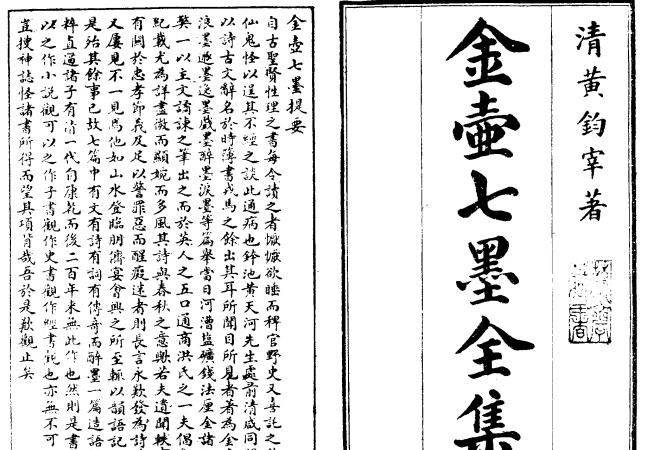 清黃鈞宰著
金壺七墨全集
金壺七墨提要
自古聖賢性理之書每令讀之者懨懨欲睡而稗官野史又喜託之
仙鬼怪以逞其不經之談此通病也鉢池黃天河先生處前清咸同
以詩古文辭名於時薄書戎馬之餘出其耳所聞目所見者著為金
浪墨遯墨逸墨戲墨醉墨淚墨等篇舉當日河漕鹽礦錢法厘金諸
獘一以主文譎諫之筆出之而於英人之五口通商洪氏之一夫倡
紀載尤為詳盡微而顯婉而多風其詩與春秋之意歟若夫遺聞軼
有關於忠孝節義及足以警罪惡而醒癡迷者則長言永歎發為詩
又屢見不一見焉他如山水登臨朋儕宴會興之所至輒以韻語記
是殆其餘事已故七篇中有文有詩有詞有傳奇而醉墨一篇造語
粹直逼諸子有清一代自康乾而後二百年來無此作也然則是書
以之作小說觀可以之作子書觀作史書觀作經書觀也亦無不可
豈搜神誌怪諸書所得而望其項背哉吾於是歎觀止矣